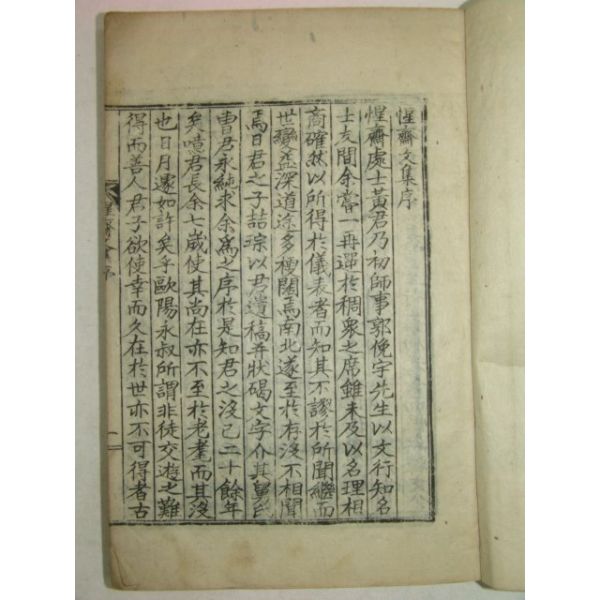 惺齋文集序
惺齋處士黃君乃初師事郭俛宇先生以文行知名
士友間余嘗一再遌於稠衆之席雖未及以名理相
商確然以所得於儀表者而知其不謬於所聞繼而
世變益深道途多梗闊焉南北遂至於存沒不相聞
焉日君之子喆琮以君遺稿幷狀碣文字介其舅氏
曹君永純求余爲之序於是知君之沒已二十餘年
矣噫君長余七歲使其尚在亦不至於老耄而其沒
也日月遽如許矣乎歐陽永叔所謂非徒交遊之難
得而善人君子欲使幸而久在於世亦不可得者古
惺齋集序
一